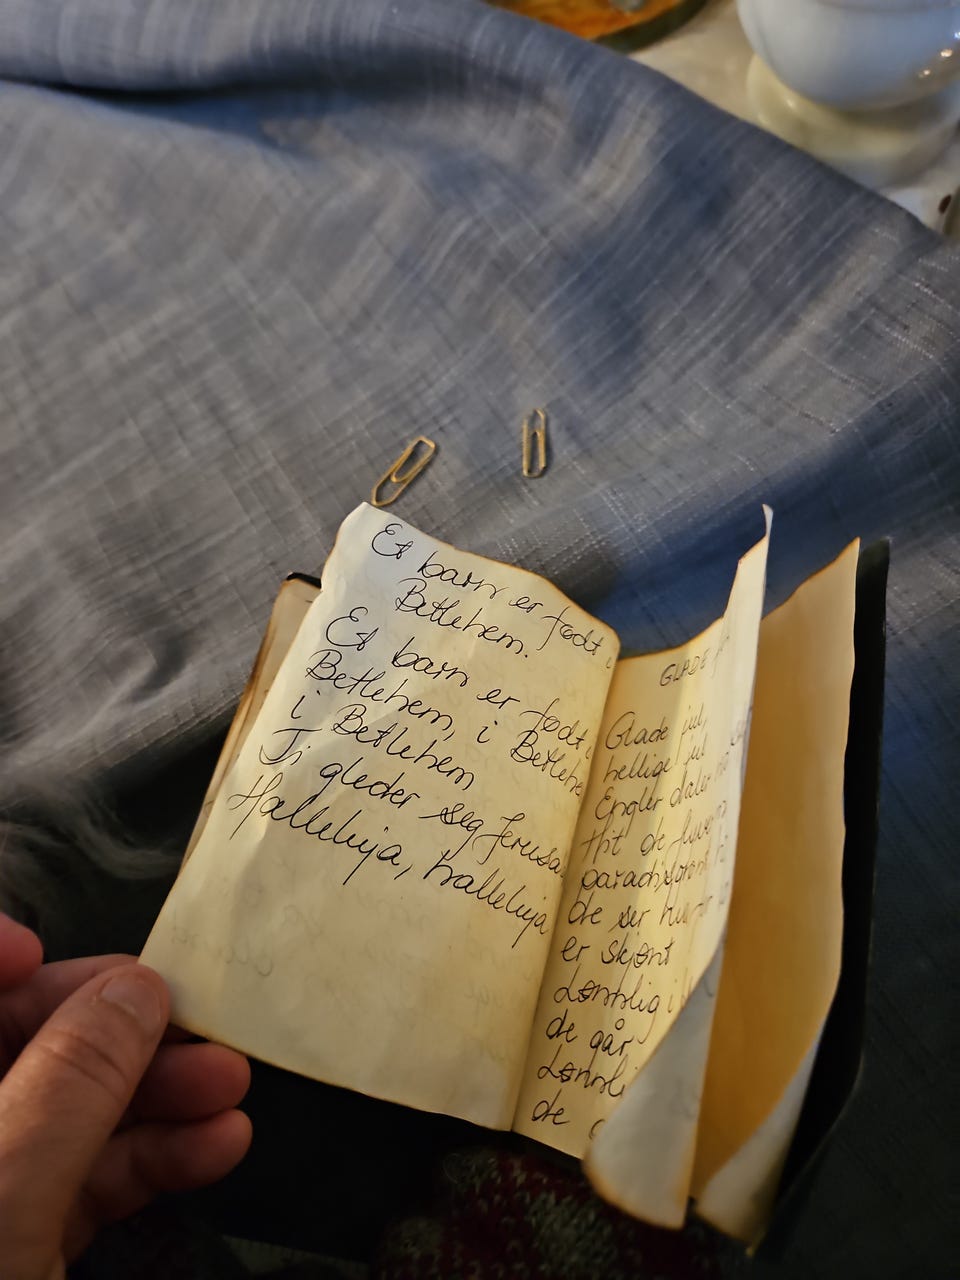 Et barn er født i
Betlehem.
Et barn er født i
Betlehem, i Betlehe
i Betlehem
Ti gleder seg Jerusa
Halleluja, halleluja
GLADE
Glade jul,
hellige jul
Engler daler
Hit de
paradis
de ser
er skjønt
Lønnlig i
de går
Lønnli
de